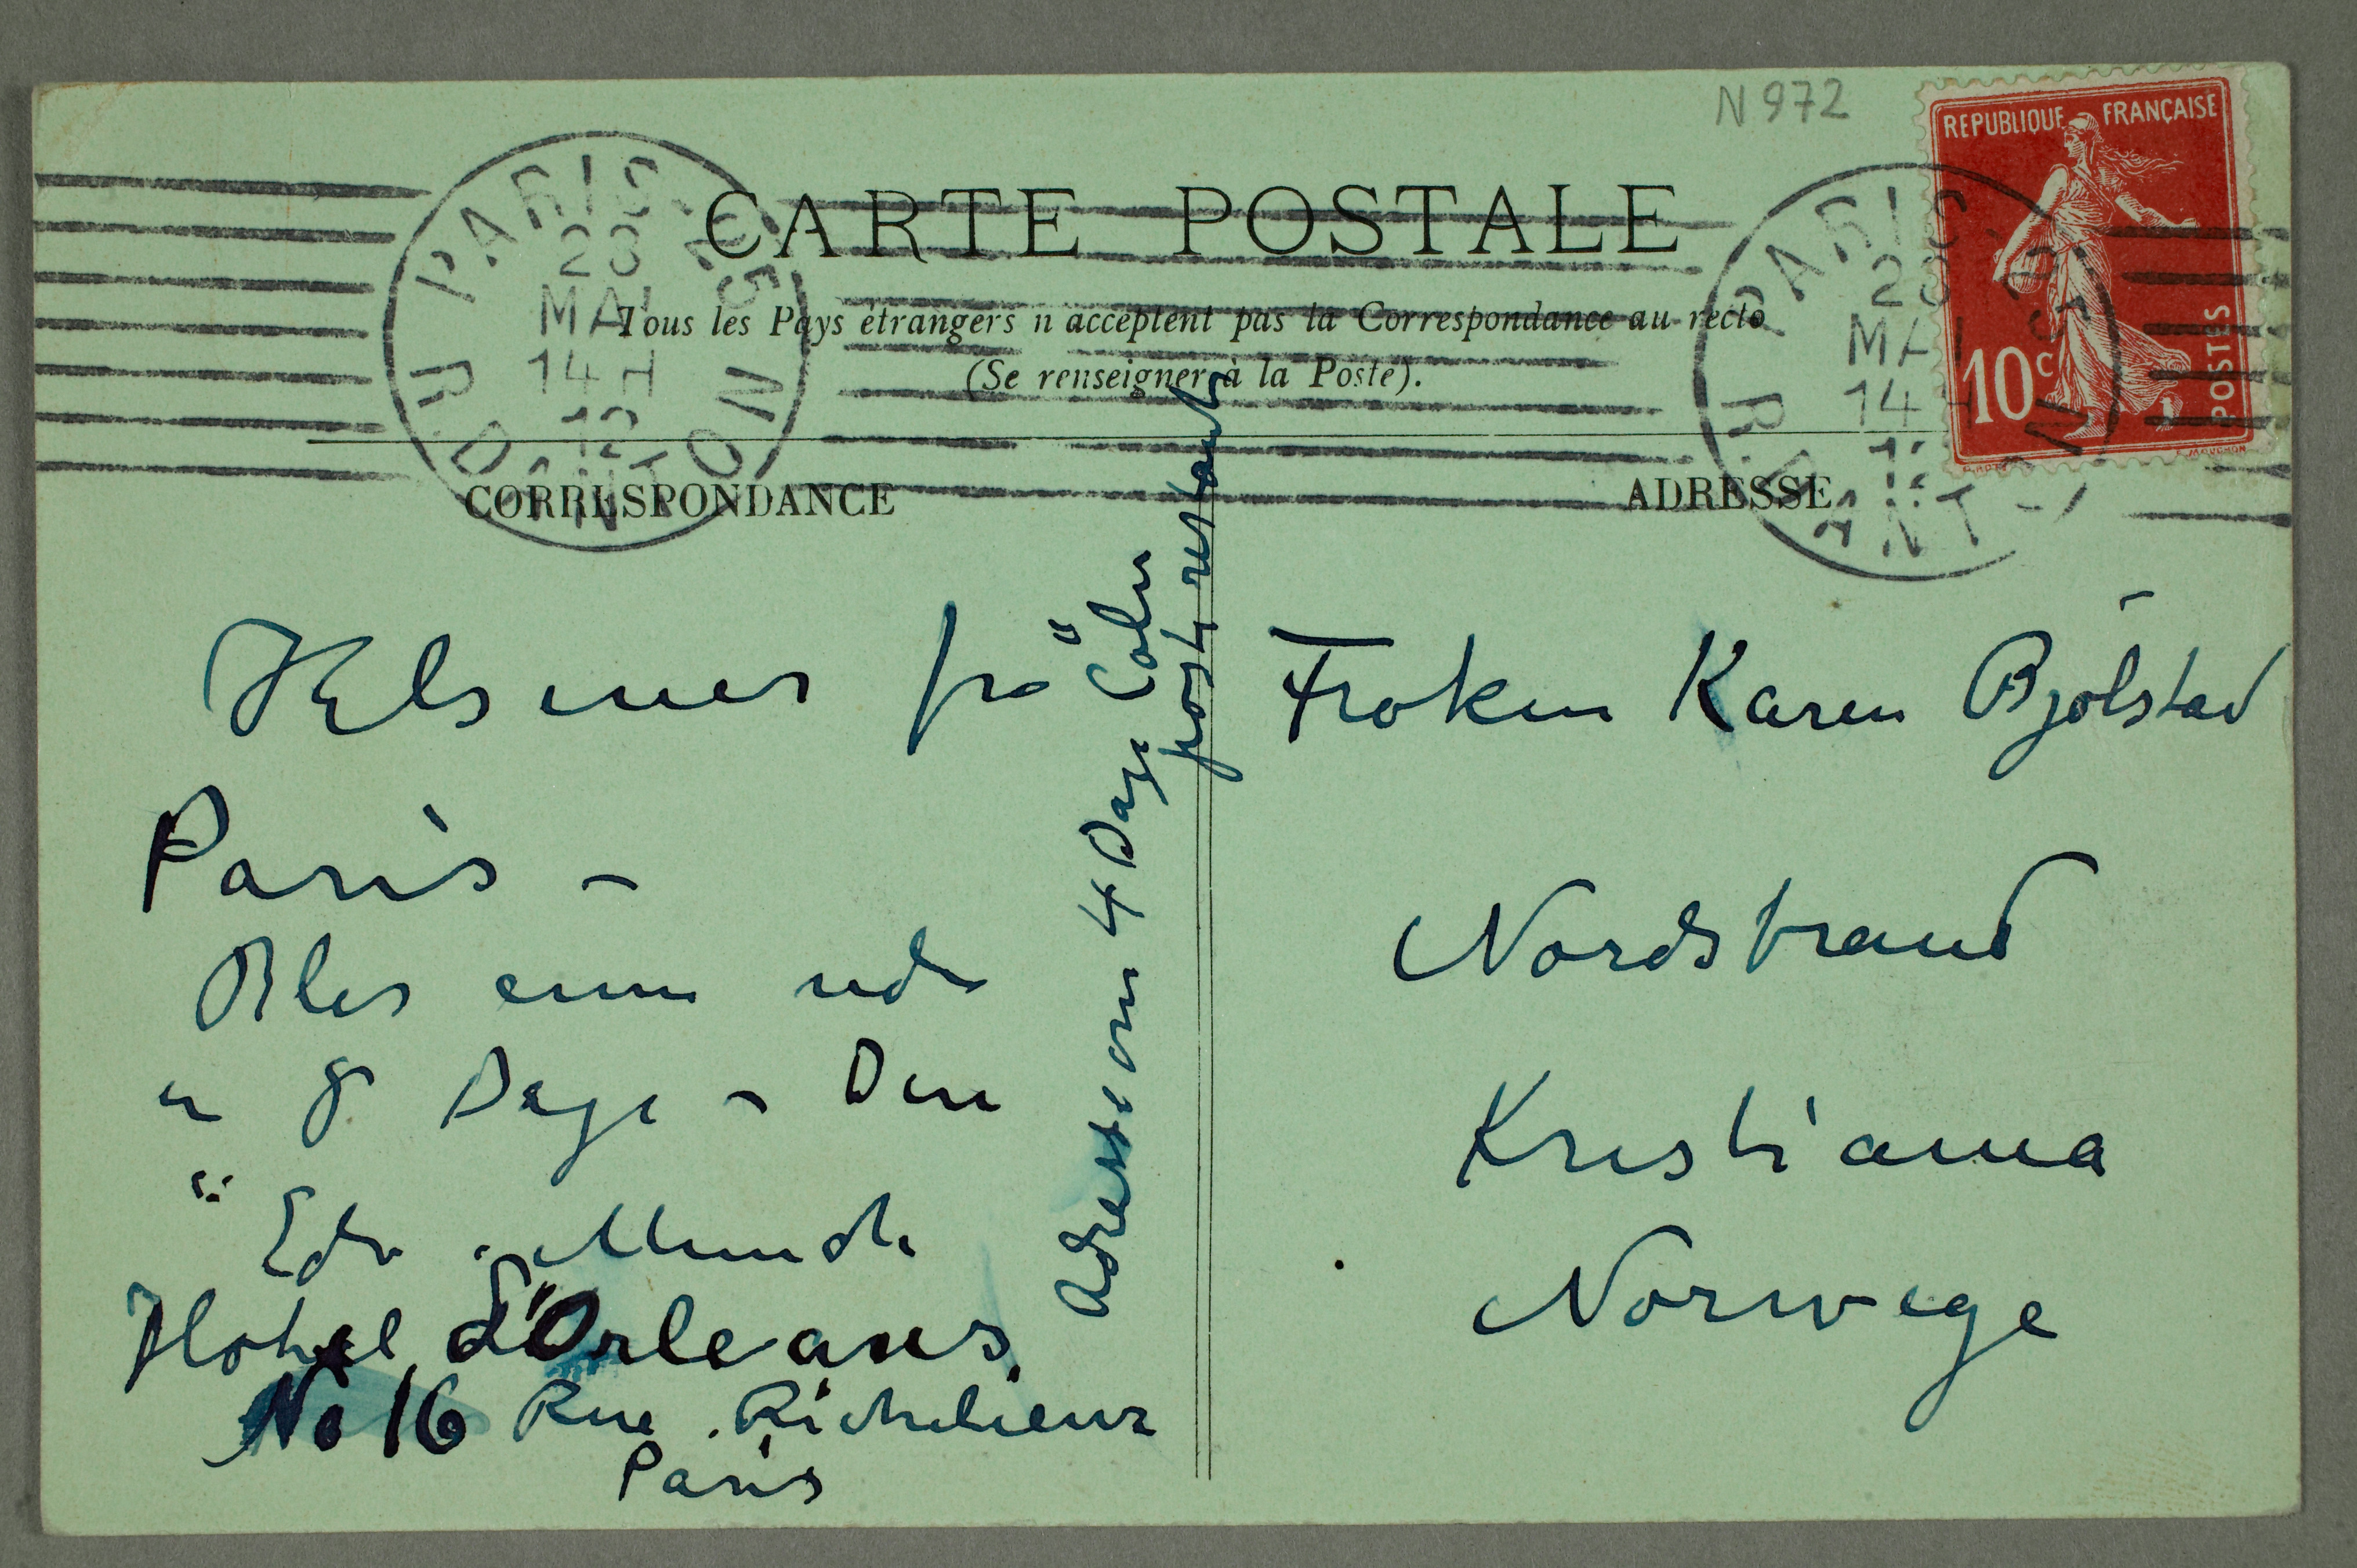 N 972
REPUBLIQUE FRANÇAISE
10c
POSTES
PARIS
MAI
14 H
12
R. DANTON
PARIS
MAI
14 H
12
R. DANTON
CARTE POSTALE
Tous les Pays étrangers n'acceptent pas la Correspondance au recto
(Se renseigner à la Poste).
CORRESPONDANCE
ADRESSE
Helsener fra
Paris –
Bler ennu
en 8 Dage – Din
Edv. Munch
Hotel d'Orleans
No 16 Rue Richelieur
Paris
Adressen 4 Dage Cöln
post restante
Frøken Karen Bjølstad
Nordstrand
Kristiania
Norwege